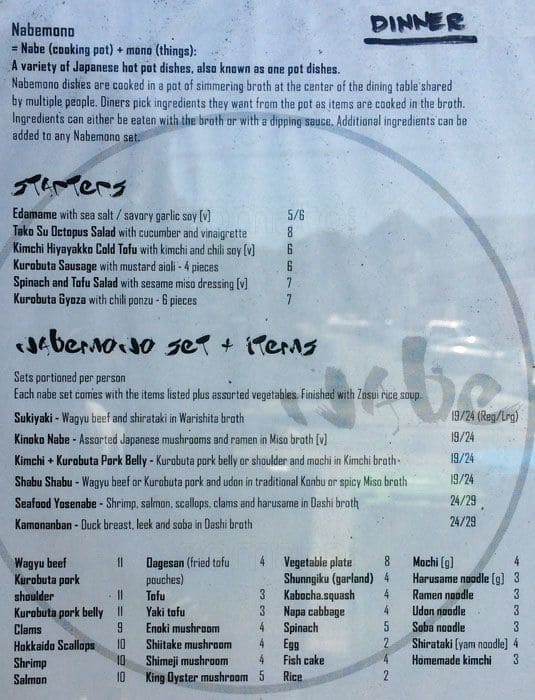 DINNER
Nabemono
= Nabe (cooking pot) + mono (things):
A variety of Japanese hot pot dishes, also known as one pot dishes.
Nabemono dishes are cooked in a pot of simmering broth at the center of the dining table shared
by multiple people. Diners pick ingredients they want from the pot as items are cooked in the broth.
Ingredients can either be eaten with the broth or with a dipping sauce. Additional ingredients can be
added to any Nabemono set.
STARTERS
Edamame with sea salt / savory garlic soy [v] 5/6
Tako Su Octopus Salad with cucumber and vinaigrette 8
Kimchi Hiyayakko Cold Tofu with kimchi and chili soy [v] 6
Kurobuta Sausage with mustard aioli - 4 pieces 6
Spinach and Tofu Salad with sesame miso dressing [v] 7
Kurobuta Gyoza with chili ponzu - 6 pieces 7
Nabemono set + items
Nabe
Sets portioned per person
Each nabe set comes with the items listed plus assorted vegetables. Finished with Zosui rice soup.
Sukiyaki - Wagyu beef and shirataki in Warishita broth 19/24 (Reg/Lrg)
Kinoko Nabe - Assorted Japanese mushrooms and ramen in Miso broth [v] 19/24
Kimchi + Kurobuta Pork Belly - Kurobuta pork belly or shoulder and mochi in Kimchi broth 19/24
Shabu Shabu - Wagyu beef or Kurobuta pork and udon in traditional Konbu or spicy Miso broth 19/24
Seafood Yosenabe - Shrimp, salmon, scallops, clams and harusame in Dashi broth 24/29
Kamonanban - Duck breast, leek and soba in Dashi broth 24/29
Wagyu beef 11
Kurobuta pork
shoulder 11
Kurobuta pork belly 11
Clams 9
Hokkaido Scallops 10
Shrimp 10
Salmon 10
Oagesan (fried tofu 4
pouches)
Tofu 3
Yaki tofu 3
Enoki mushroom 4
Shiitake mushroom 4
Shimeji mushroom 4
King Oyster mushroom 5
Vegetable plate 8
Shunngiku (garland) 4
Kabocha squash 4
Napa cabbage 4
Spinach 5
Egg 2
Fish cake 4
Rice 2
Mochi [g] 4
Harusame noodle [g] 3
Ramen noodle 3
Udon noodle 3
Soba noodle 3
Shirataki [yam noodle] 4
Homemade kimchi 3